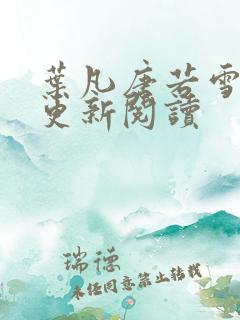 葉凡唐若雪
更新閱讀
瑞德
未経同意禁止转载